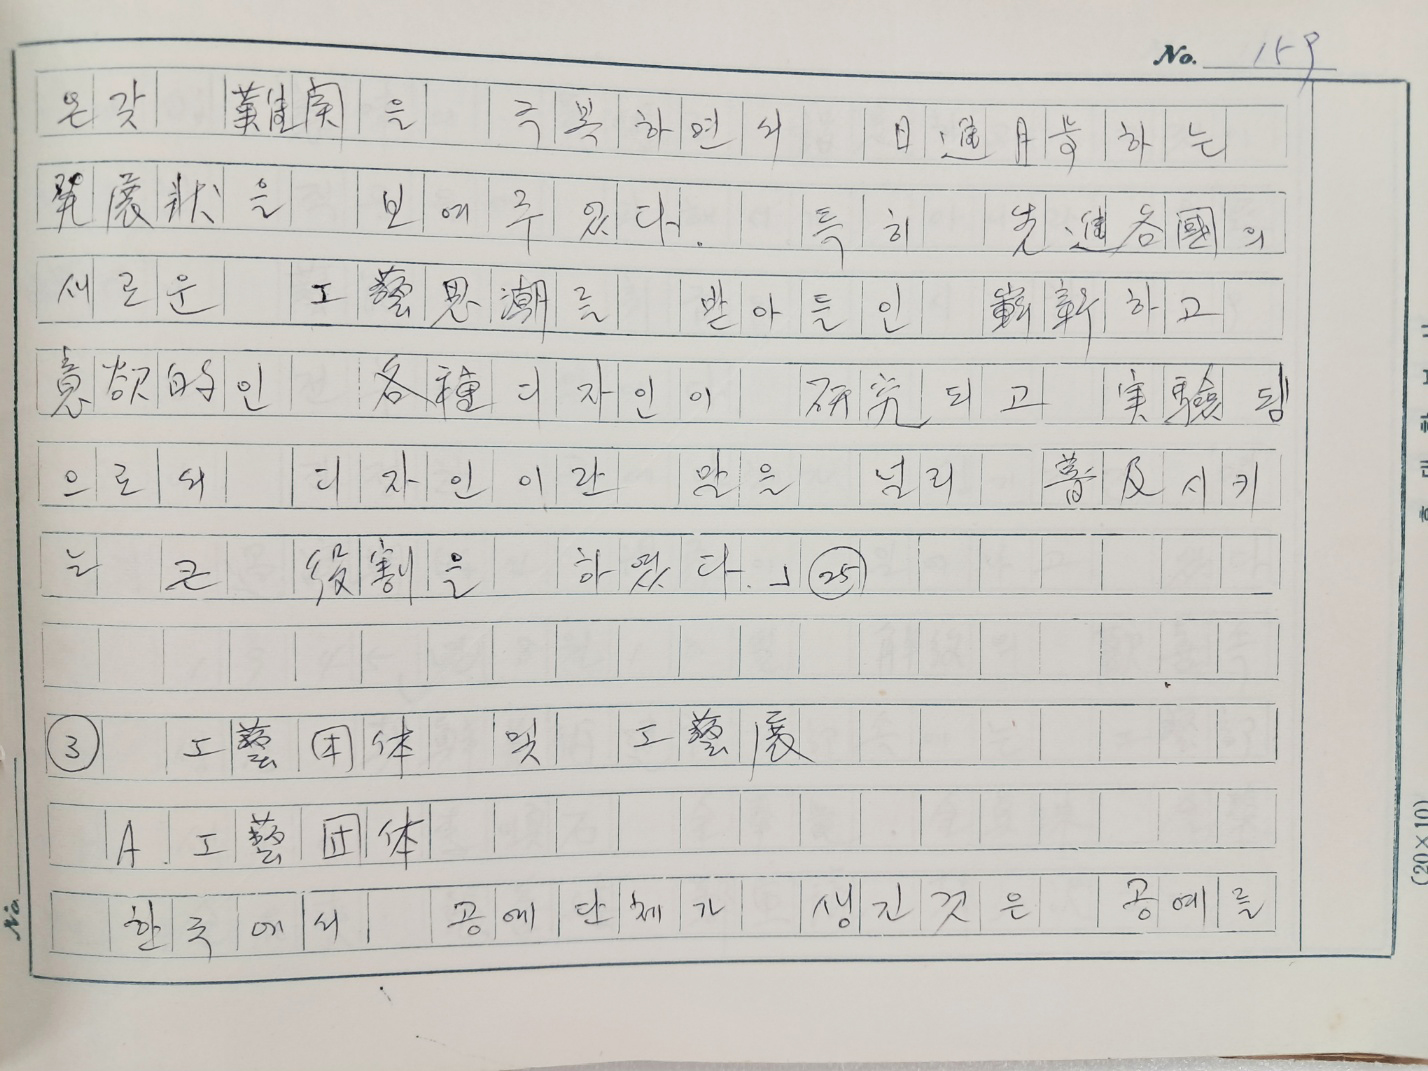 No. 159
온갖 難関을 극복하면서 日進月步하는
発展狀을 보여주었다. 특히 先進各國의
새로운 工藝思潮를 받아들인 嶄新하고
意欲的인 各種 디자인이 研究되고 実驗됨
으로서 디자인이란 말을 널리 普及시키
는 큰 役割을 하였다.」 ㉕
③ 工藝団体 및 工藝展
A. 工藝団体
한국에서 공예단체가 생긴것은 공예를
No.
(20×10)